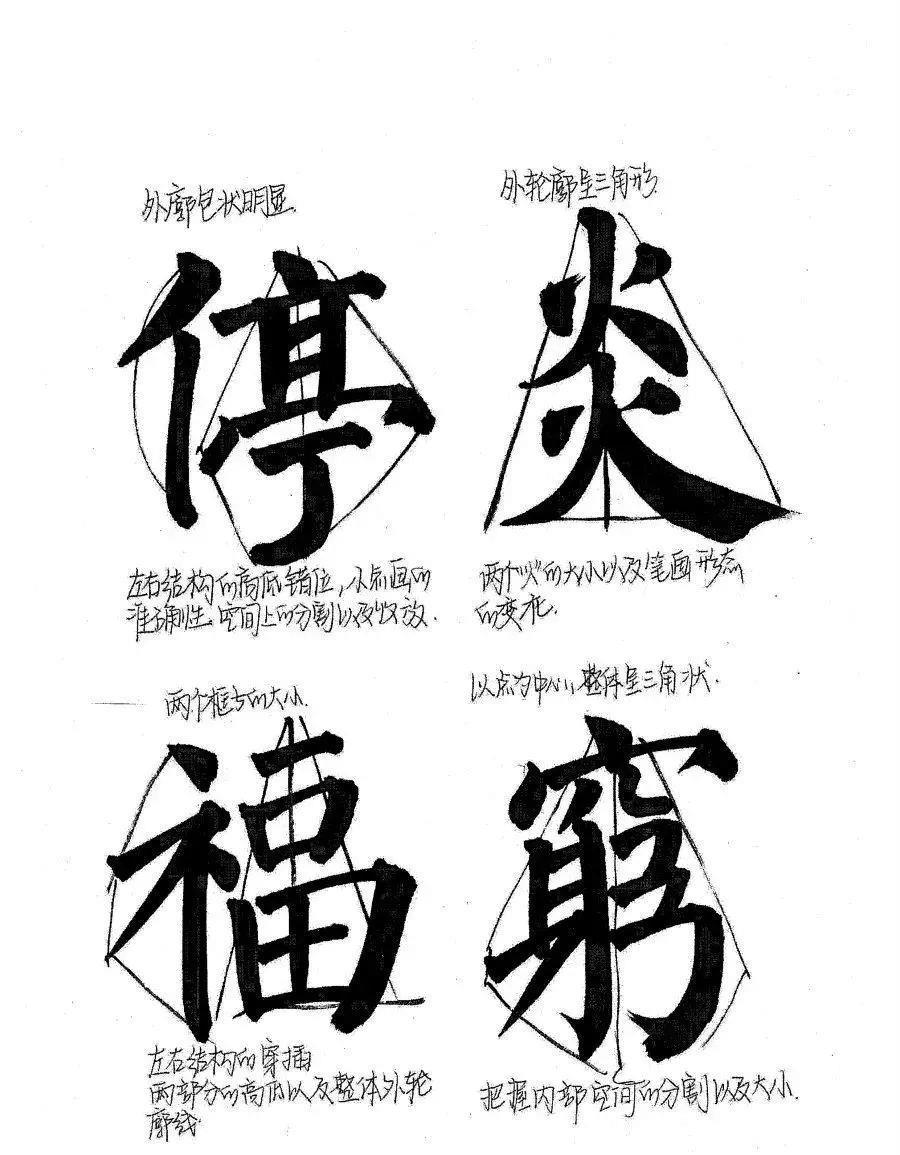 外廓包状明显.
停
左右结构的高低错位,小点画的
准确性.空间上的分割以及收放.
外轮廓呈三角形.
炎
两个“火”的大小以及笔画形态
的变化.
两个框与的大小.
福
左右结构的穿插
两部分的高低以及整体外轮
廓线.
以点为中心,整体呈三角状.
窮
把握内部空间的分割以及大小.